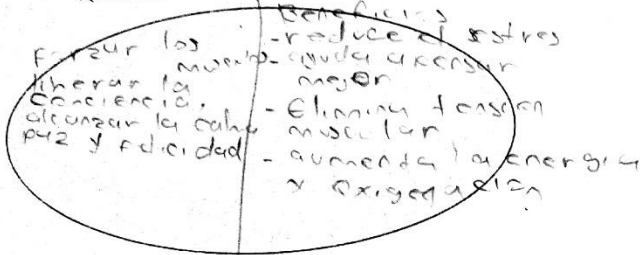 Forzar los
muscu
liberar la
conciencia.
alcanzar la calma
paz y felicidad
Beneficios
- reduce el estres
- ayuda a pensar
mejor
- Elimina tension
muscular
- aumenta la energia
y oxigenación